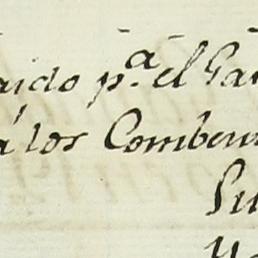 aido p.ª el Ga
á los Comben
Su